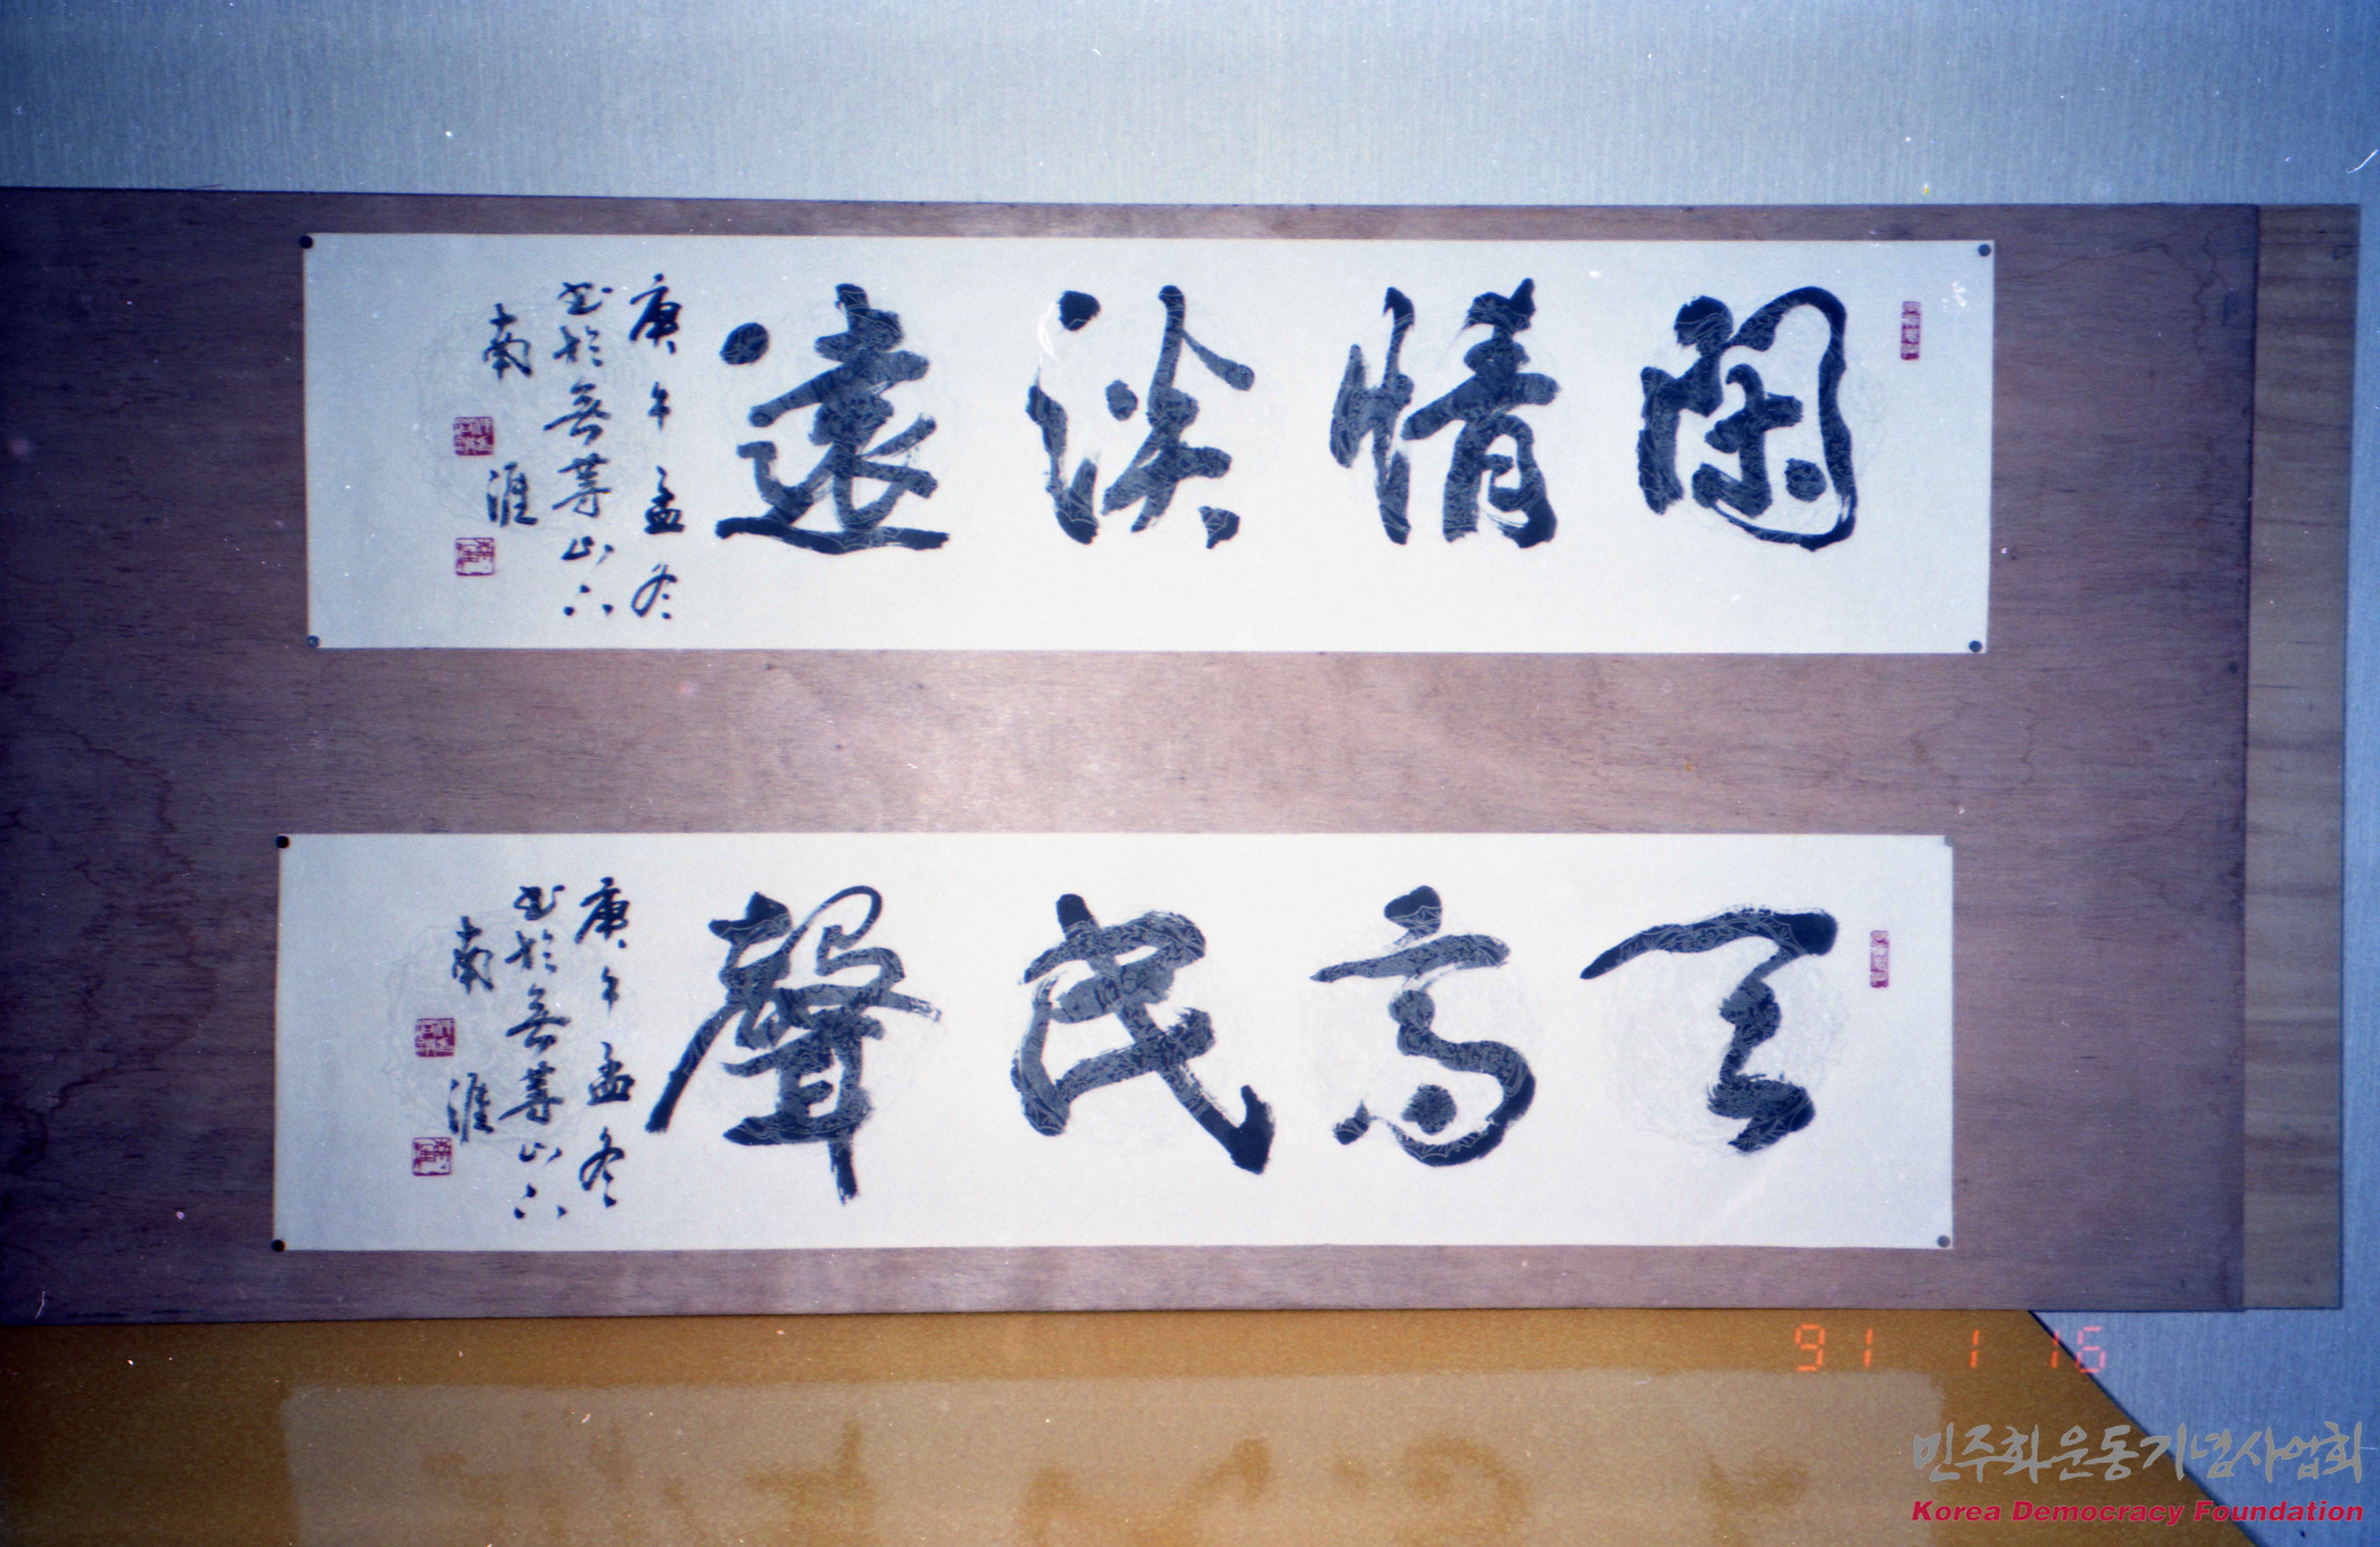 閑情淡遠
庚午孟冬
書於無等山下
南涯
天高民聲
庚午孟冬
書於無等山下
南涯
91 1 16
민주화운동기념사업회
Korea Democracy Foundation